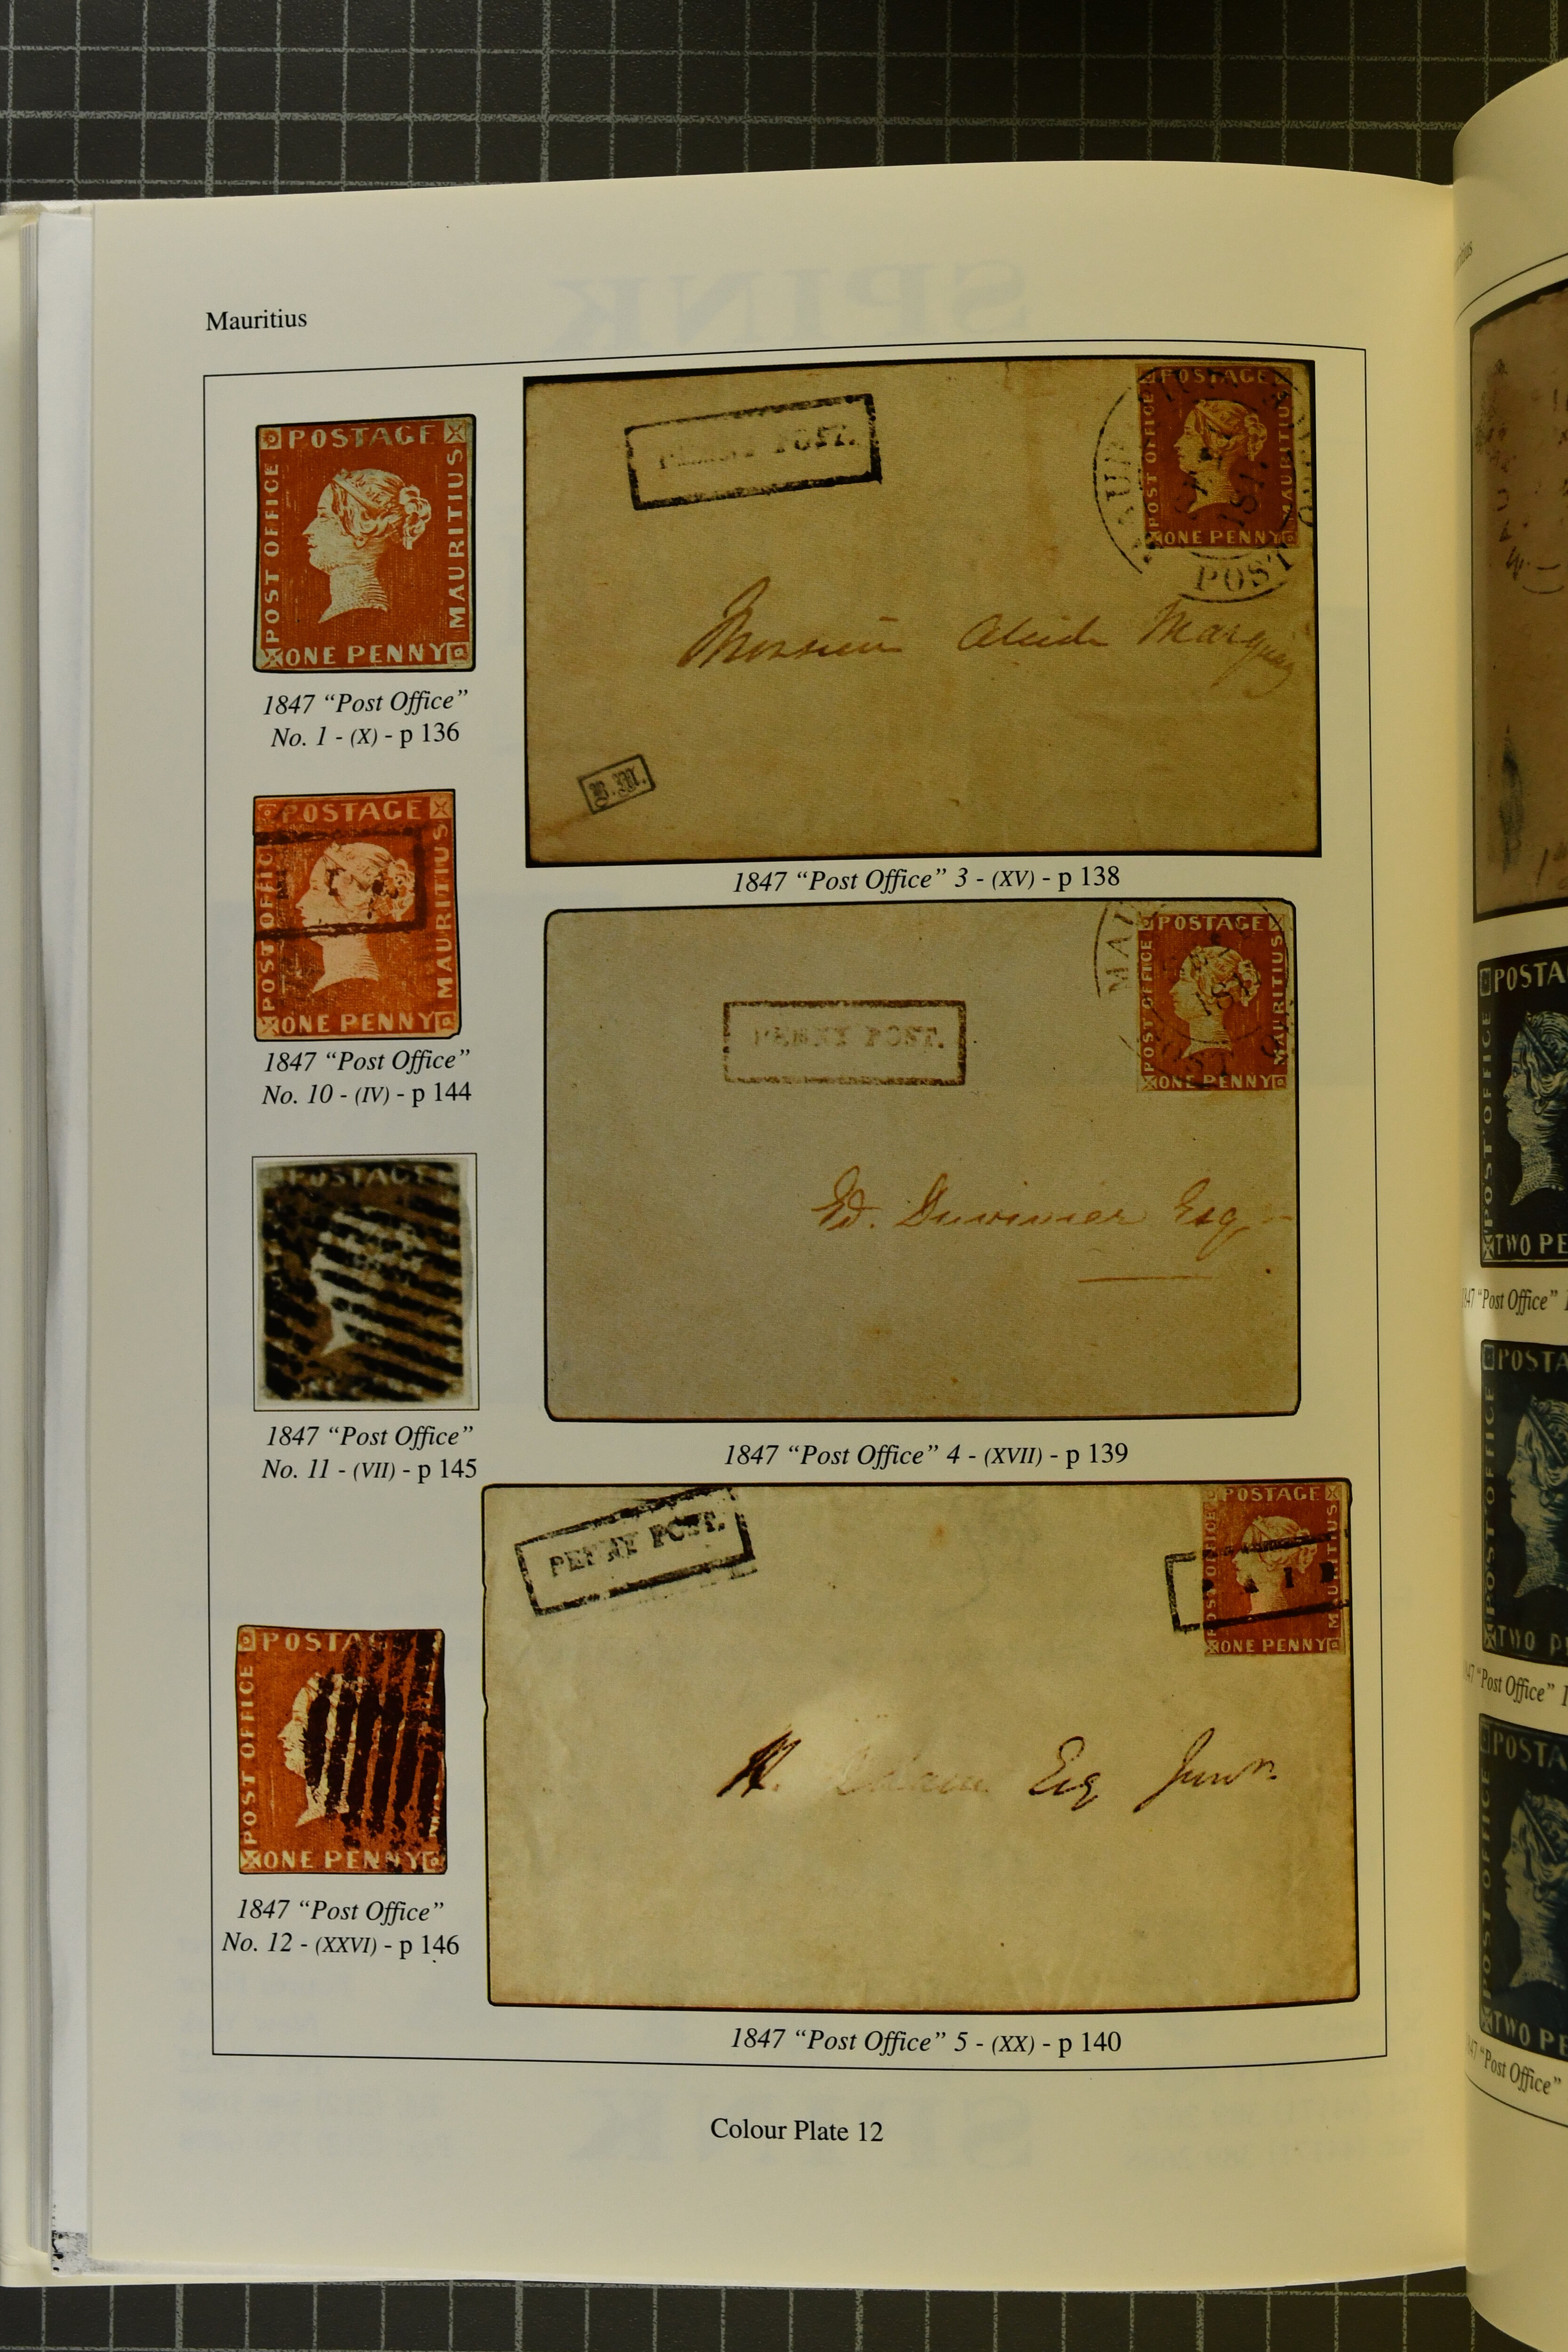 Mauritius
POSTAGE
POST OFFICE
MAURITIUS
ONE PENNY
1847 “Post Office”
No. 1 - (X) - p 136
POSTAGE
POST OFFICE
MAURITIUS
ONE PENNY
1847 “Post Office”
No. 10 - (IV) - p 144
POSTAGE
1847 “Post Office”
No. 11 - (VII) - p 145
POSTAG
POST OFFICE
ONE PENNY
1847 “Post Office”
No. 12 - (XXVI) - p 146
POST.
POSTAGE
POST OFFICE
MAURITIUS
ONE PENNY
POST
Monsieur Alcide Marquay
B.M.
1847 “Post Office” 3 - (XV) - p 138
PENNY POST.
POSTAGE
POST OFFICE
MAURITIUS
ONE PENNY
Ed. Duvivier Esq
1847 “Post Office” 4 - (XVII) - p 139
PENNY POST.
POSTAGE
POST OFFICE
MAURITIUS
ONE PENNY
H. Adam Esq Junr.
1847 “Post Office” 5 - (XX) - p 140
Colour Plate 12
POSTA
POST OFFICE
TWO PE
“Post Office”
POSTA
POST OFFICE
TWO P
“Post Office”
POSTA
POST OFFICE
TWO PE
“Post Office”